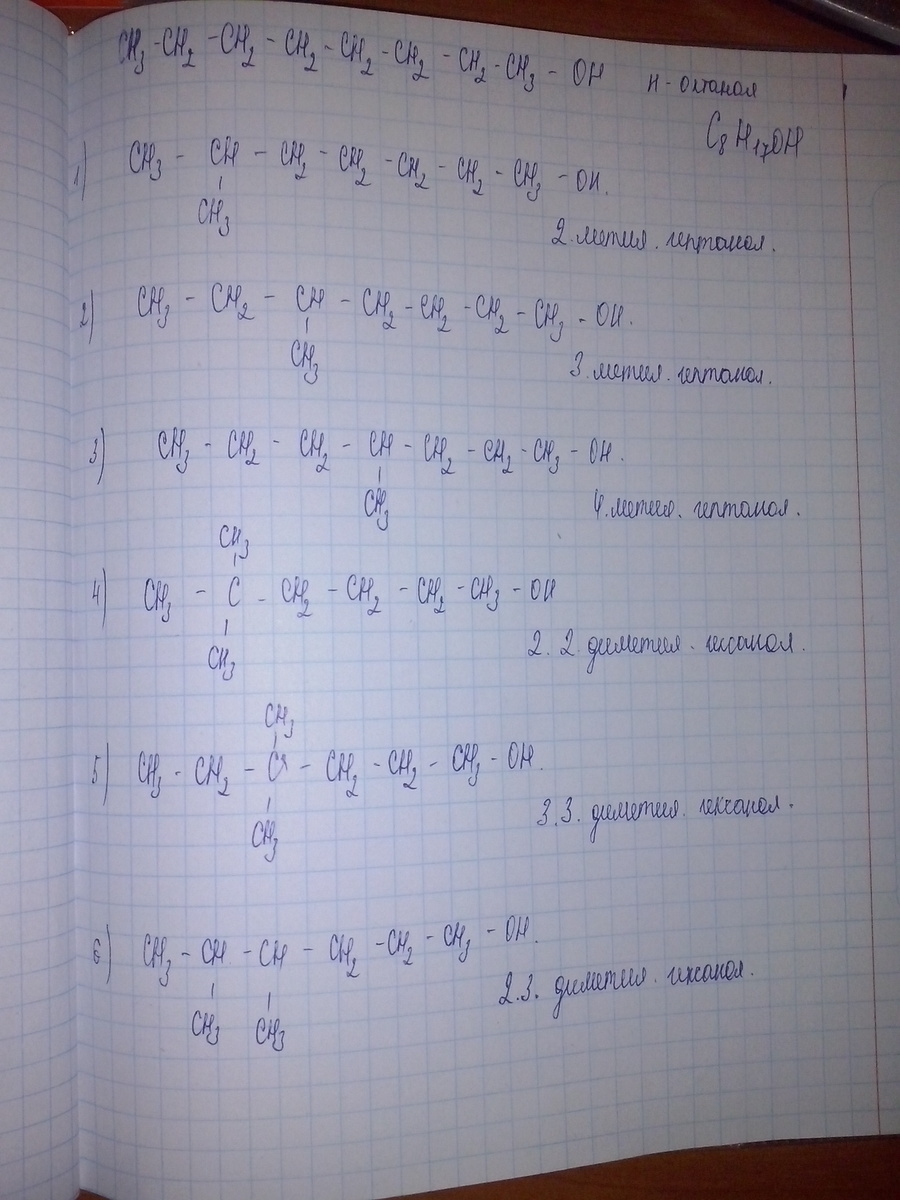 CH₃-CH₂-CH₂-CH₂-CH₂-CH₂-CH₂-CH₃-OH н-октанол
C₈H₁₇OH
1) CH₃-CH-CH₂-CH₂-CH₂-CH₂-CH₃-OH.
CH₃
2. метил. гептанол.
2) CH₃-CH₂-CH-CH₂-CH₂-CH₂-CH₃-OH.
CH₃
3. метил. гептанол.
3) CH₃-CH₂-CH₂-CH-CH₂-CH₂-CH₃-OH.
CH₃
4. метил. гептанол.
CH₃
4) CH₃-C-CH₂-CH₂-CH₂-CH₃-OH
CH₃
2. 2. диметил. гексанол.
CH₃
5) CH₃-CH₂-C-CH₂-CH₂-CH₃-OH.
CH₃
3.3. диметил. гексанол.
6) CH₃-CH-CH-CH₂-CH₂-CH₃-OH.
CH₃ CH₃
2.3. диметил. гексанол.